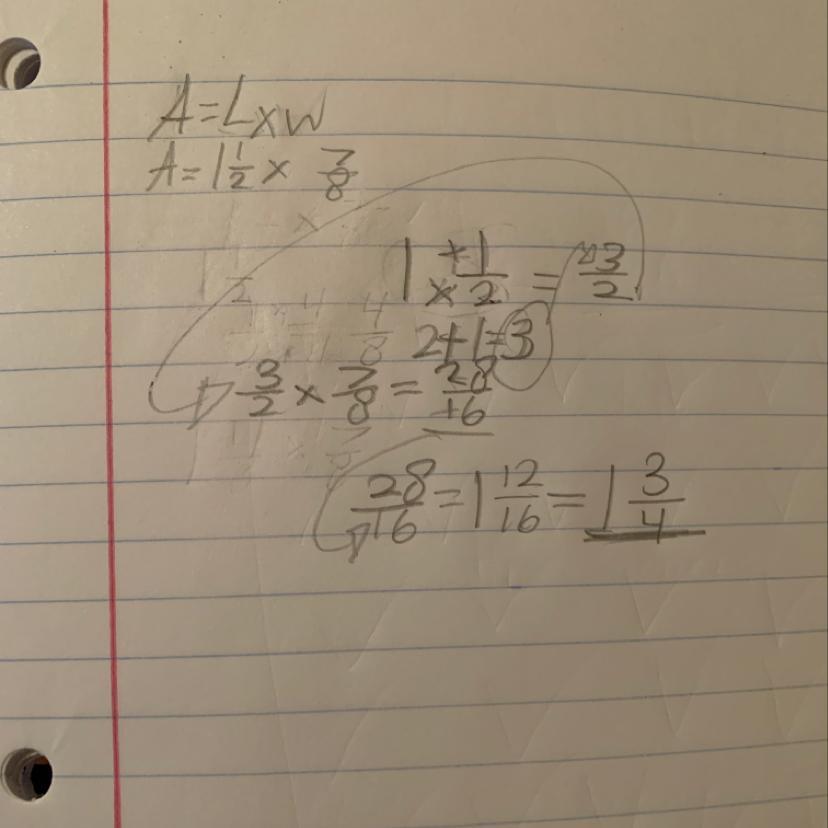 A=L×W
A=1 1/2 × 7/8
1 + 1/× 2 = 3/2
2+1=3
3/2 × 7/8 = 28/16
28/16 = 1 12/16 = 1 3/4